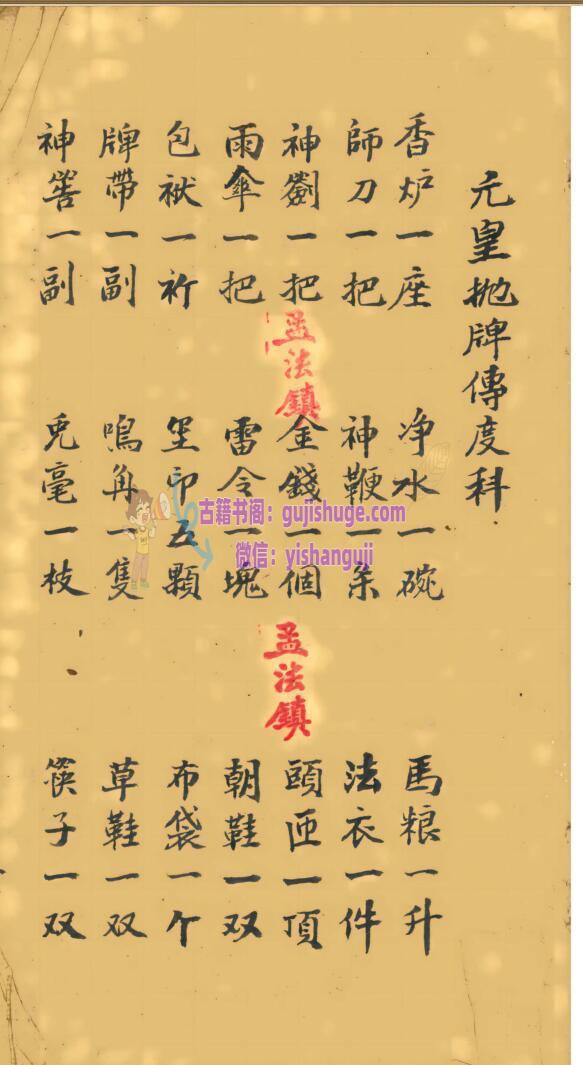 元皇抛牌傳度科
香炉一座 净水一碗 馬粮一升
師刀一把 神鞭一条 法衣一件
神劉一把 金錢一個 頭匝一頂
雨傘一把 雷令一塊 朝鞋一双
包袱一 印五顆 布袋一个
牌帶一副 鳴角一隻 草鞋一双
神一副 兎毫一枝 筷子一双
孟法鎮
孟法鎮
古籍书阁：gujishuge.com
微信：yishanguji